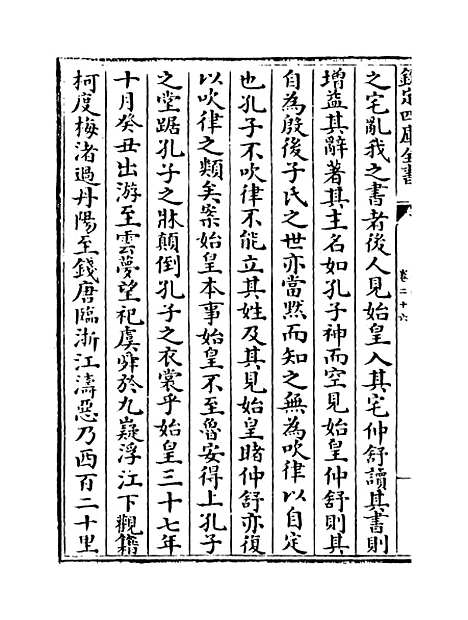 欽定四庫全書
卷二十六
之宅亂我之書者後人見始皇入其宅仲舒讀其書則
增益其辭著其主名如孔子神而空見始皇仲舒則其
自為殷後子氏之世亦當黙而知之無為吹律以自定
也孔子不吹律不能立其姓及其見始皇睹仲舒亦復
以吹律之類矣案始皇本事始皇不至魯安得上孔子
之堂踞孔子之牀顛倒孔子之衣裳乎始皇三十七年
十月癸丑出游至雲夢望祀虞舜於九嶷浮江下觀籍
柯度梅渚過丹陽至錢唐臨浙江濤惡乃西百二十里